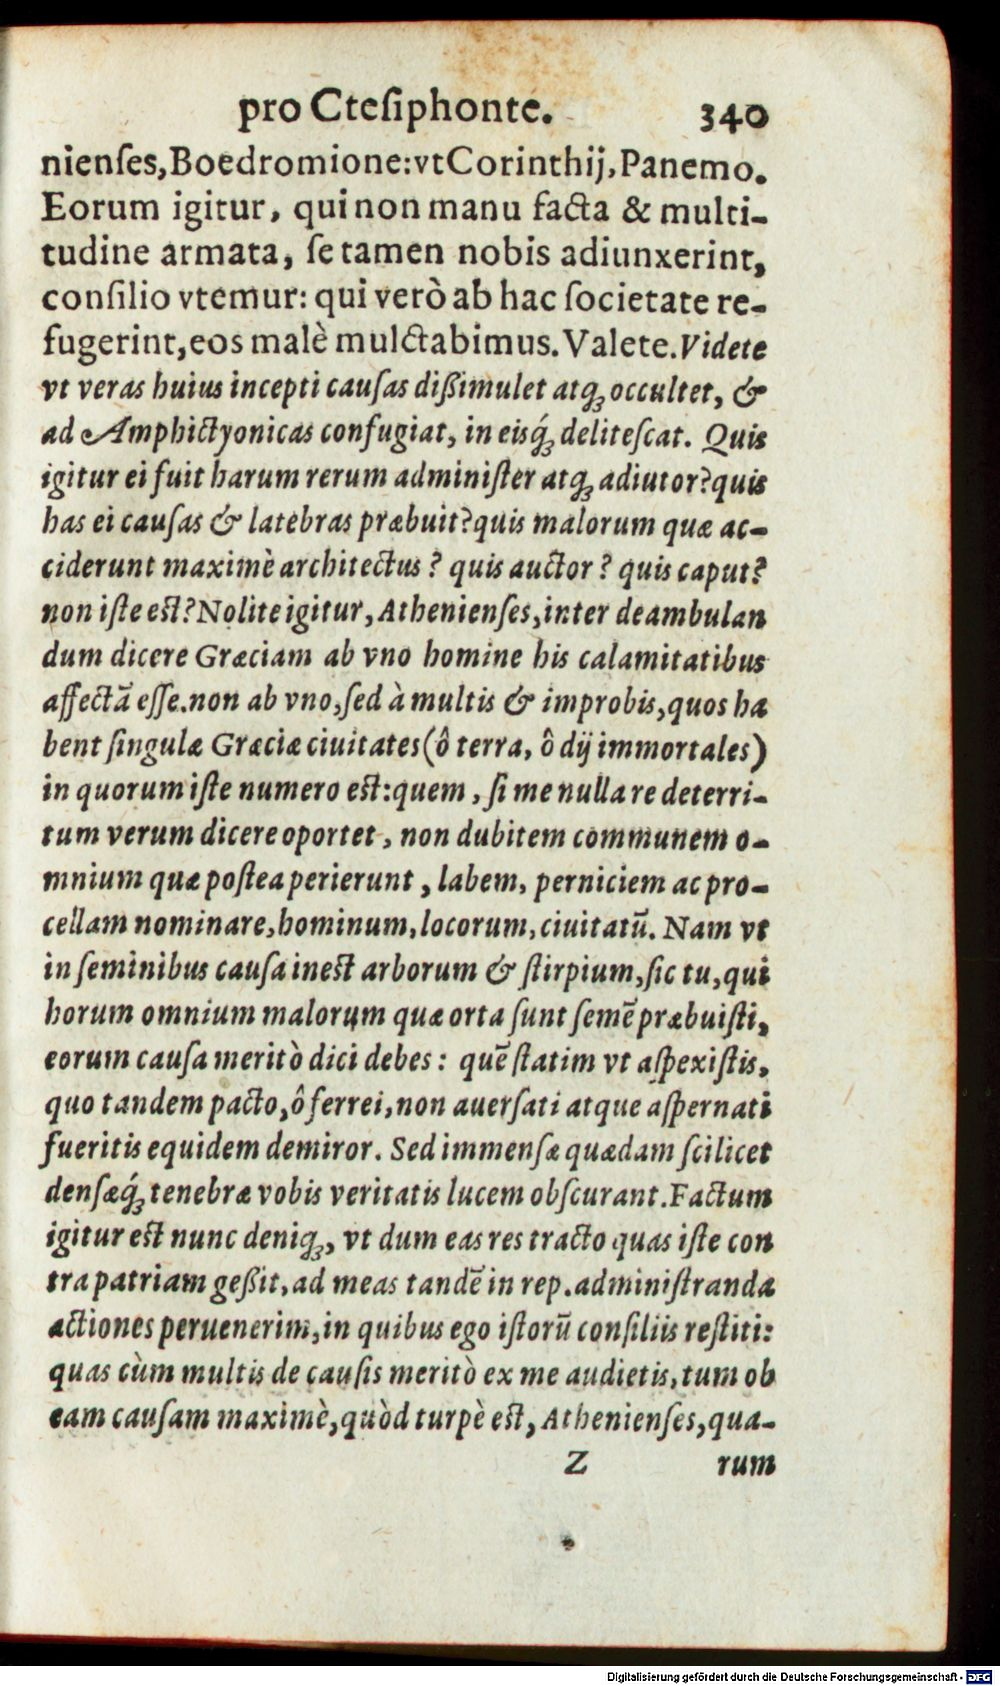 pro Cteſiphonte. 340
nienſes, Boedromione: vt Corinthij, Panemo.
Eorum igitur, qui non manu facta & multi-
tudine armata, ſe tamen nobis adiunxerint,
conſilio vtemur: qui verò ab hac ſocietate re-
fugerint, eos malè mulctabimus. Valete. Videte
vt veras huius incepti cauſas dißimulet atqꝫ occultet, &
ad Amphictyonicas confugiat, in eisq́ꝫ deliteſcat. Quis
igitur ei fuit harum rerum adminiſter atqꝫ adiutor? quis
has ei cauſas & latebras præbuit? quis malorum quæ ac-
ciderunt maximè architectus? quis auctor? quis caput?
non iſte eſt? Nolite igitur, Athenienſes, inter deambulan
dum dicere Græciam ab vno homine his calamitatibus
affectã eſſe. non ab vno, ſed à multis & improbis, quos ha
bent ſingulæ Græciæ ciuitates (ô terra, ô dij immortales)
in quorum iſte numero eſt: quem, ſi me nulla re deterri-
tum verum dicere oportet, non dubitem communem o-
mnium quæ poſtea perierunt, labem, perniciem ac pro-
cellam nominare, hominum, locorum, ciuitatũ. Nam vt
in ſeminibus cauſa ineſt arborum & ſtirpium, ſic tu, qui
horum omnium malorum quæ orta ſunt ſemẽ præbuiſti,
eorum cauſa meritò dici debes: quẽ ſtatim vt aſpexiſtis,
quo tandem pacto, ô ferrei, non auerſati atque aſpernati
fueritis equidem demiror. Sed immenſæ quædam ſcilicet
denſæq́ꝫ tenebræ vobis veritatis lucem obſcurant. Factum
igitur eſt nunc deniqꝫ, vt dum eas res tracto quas iſte con
tra patriam geßit, ad meas tandẽ in rep. adminiſtranda
actiones peruenerim, in quibus ego iſtorũ conſiliis reſtiti:
quas cùm multis de cauſis meritò ex me audietis, tum ob
eam cauſam maximè, quòd turpè eſt, Athenienſes, qua-
Z rum
Digitalisierung gefördert durch die Deutsche Forschungsgemeinschaft - DFG